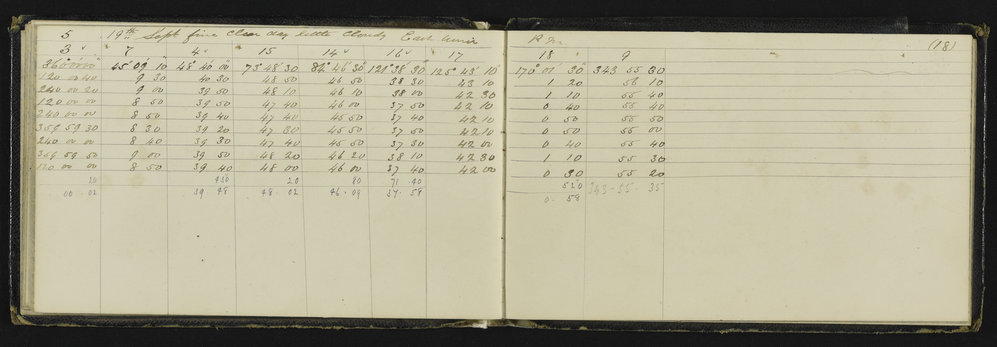 5 19th Sept fine clear day little Cloudy East (18)
3 7 4 15 14 16 17 18 9
360°00'00" 45°09'10 48°40'00 73°48'30 84°46'30 121°38'30 125°43'10 170°01'30 343 55 30
120 00 40 9 30 40 30 48 50 46 50 38 30 43 10 1 20 56 10
240 00 20 9 00 39 50 48 10 46 10 38 00 42 30 1 10 55 40
120 00 00 8 50 39 50 47 40 46 00 37 50 42 10 0 40 55 40
240 00 00 8 50 39 40 47 40 45 50 37 40 42 10 0 50 55 50
359 59 30 8 30 39 20 47 30 45 50 37 50 42 10 0 50 55 00
240 00 00 8 40 39 30 47 40 45 50 37 30 42 00 0 40 55 40
359 59 50 9 00 39 50 48 20 46 20 38 10 42 30 1 10 55 30
120 00 00 8 50 39 40 48 00 46 00 37 40 42 00 0 30 55 20
20 20 80 520 343-55-35
00-02 39 48 48-02 46-09 37-58 0-58